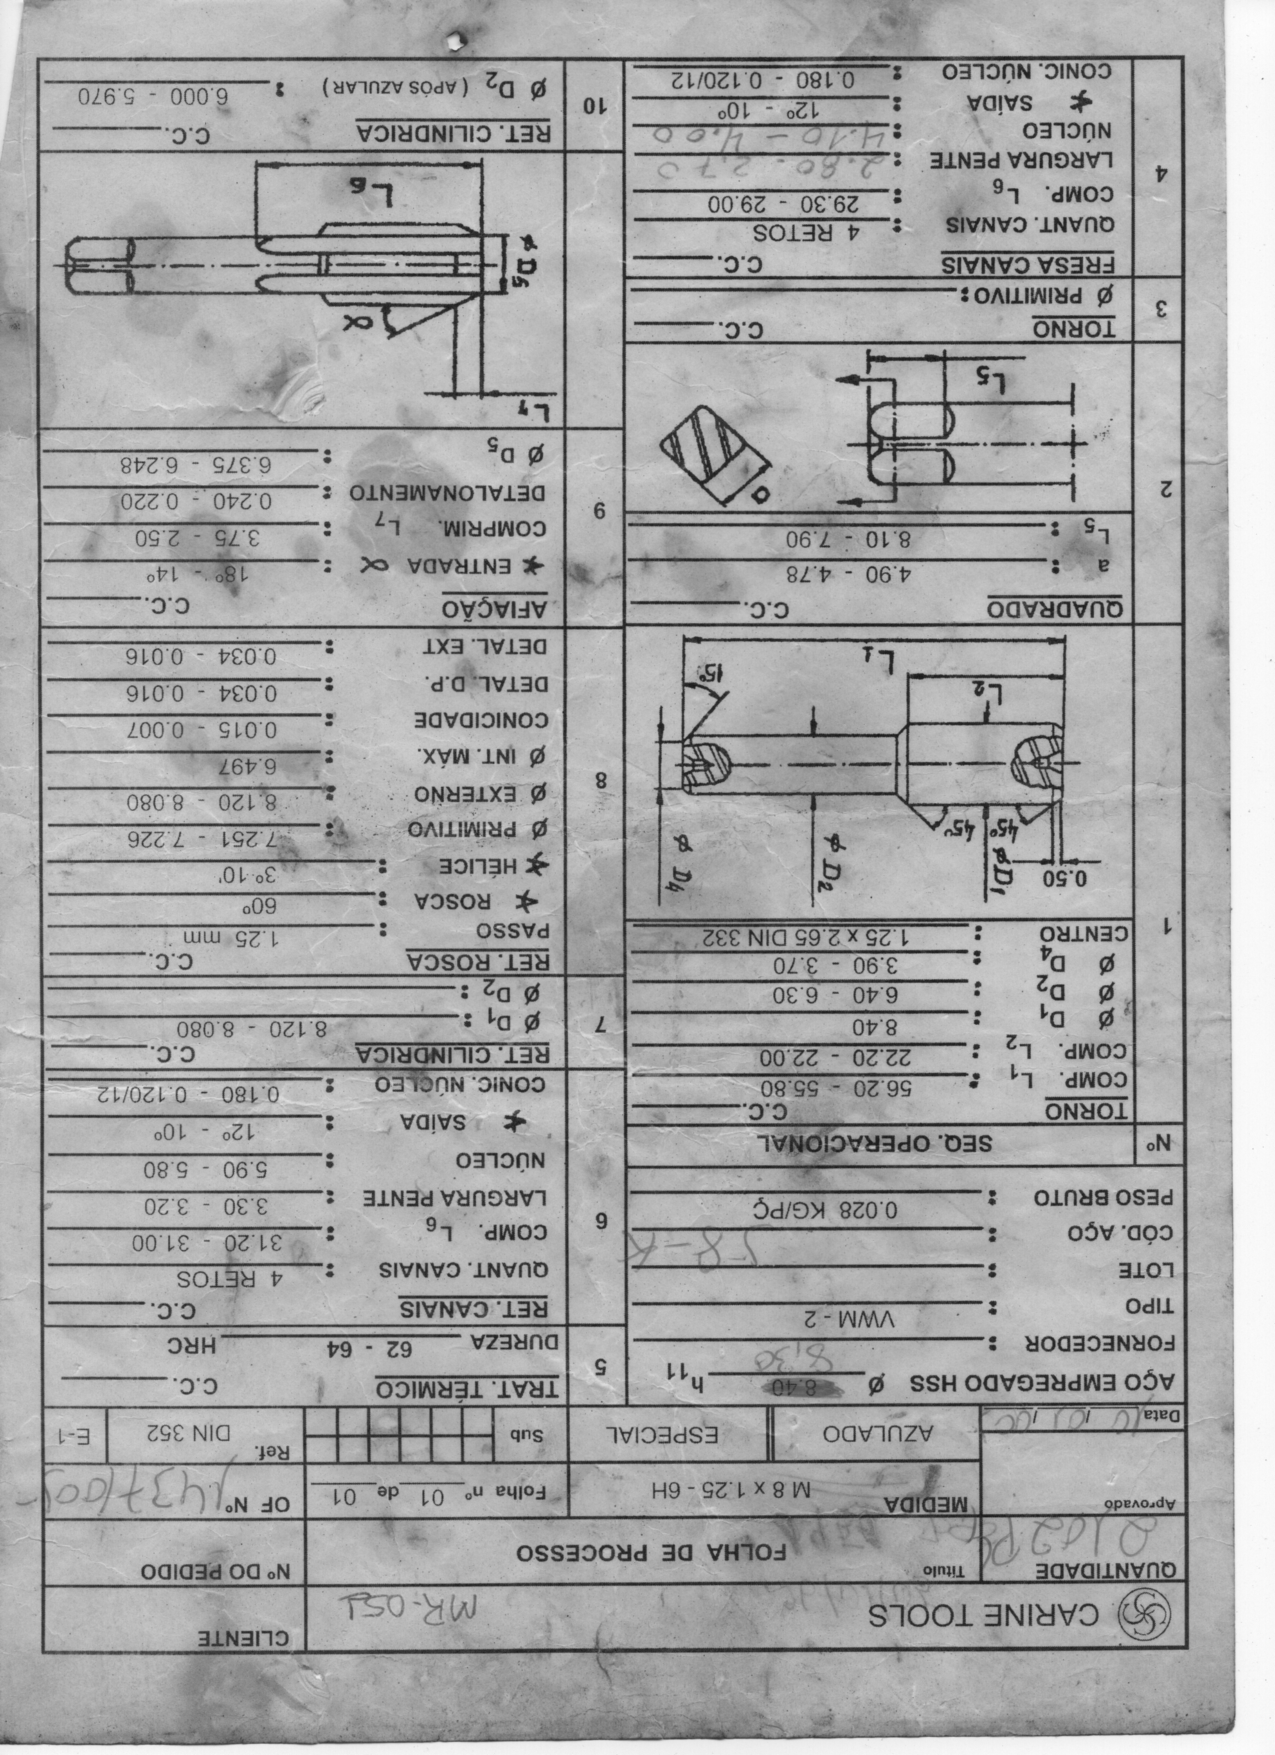 CARINE TOOLS
MR-051
CLIENTE
QUANTIDADE
2102
Título
FOLHA DE PROCESSO
Nº DO PEDIDO
Aprovado
MEDIDA
M 8 x 1.25 - 6H
Folha nº 01 de 01
OF Nº
Data / /
AZULADO
ESPECIAL
Sub
Ref.
DIN 352
E-1
AÇO EMPREGADO HSS Ø 8.40 h11
8,30
FORNECEDOR :
TIPO : VWM - 2
LOTE :
CÓD. AÇO :
58-K
PESO BRUTO : 0.028 KG/PÇ
Nº SEQ. OPERACIONAL
1
TORNO C.C.
COMP. L1 : 56.20 - 55.80
COMP. L2 : 22.20 - 22.00
Ø D1 : 8.40
Ø D2 : 6.40 - 6.30
Ø D4 : 3.90 - 3.70
CENTRO : 1.25 x 2.65 DIN 332
0.50
ø D1
ø D2
ø D4
45°
45°
15°
L2
L1
2
QUADRADO C.C.
a : 4.90 - 4.78
L5 : 8.10 - 7.90
a
L5
3
TORNO C.C.
Ø PRIMITIVO :
4
FRESA CANAIS C.C.
QUANT. CANAIS : 4 RETOS
COMP. L6 : 29.30 - 29.00
LARGURA PENTE : 2.80 - 2.70
NÚCLEO : 4.10 - 4.00
SAÍDA : 12º - 10º
CONIC. NÚCLEO : 0.180 - 0.120/12
5
TRAT. TÉRMICO C.C.
DUREZA 62 - 64 HRC
6
RET. CANAIS C.C.
QUANT. CANAIS : 4 RETOS
COMP. L6 : 31.20 - 31.00
LARGURA PENTE : 3.30 - 3.20
NÚCLEO : 5.90 - 5.80
SAÍDA : 12º - 10º
CONIC. NÚCLEO : 0.180 - 0.120/12
7
RET. CILINDRICA C.C.
Ø D1 : 8.120 - 8.080
Ø D2 :
8
RET. ROSCA C.C.
PASSO 1.25 mm
ROSCA : 60º
HÉLICE : 3º 10'
Ø PRIMITIVO : 7.251 - 7.226
Ø EXTERNO : 8.120 - 8.080
Ø INT. MÁX. : 6.497
CONICIDADE : 0.015 - 0.007
DETAL. D.P. : 0.034 - 0.016
DETAL. EXT : 0.034 - 0.016
9
AFIAÇÃO C.C.
ENTRADA α : 18º - 14º
COMPRIM. L7 : 3.75 - 2.50
DETALONAMENTO : 0.240 - 0.220
Ø D5 : 6.375 - 6.248
L7
α
ø D5
L6
10
RET. CILINDRICA C.C.
Ø D2 (APÓS AZULAR) : 6.000 - 5.970